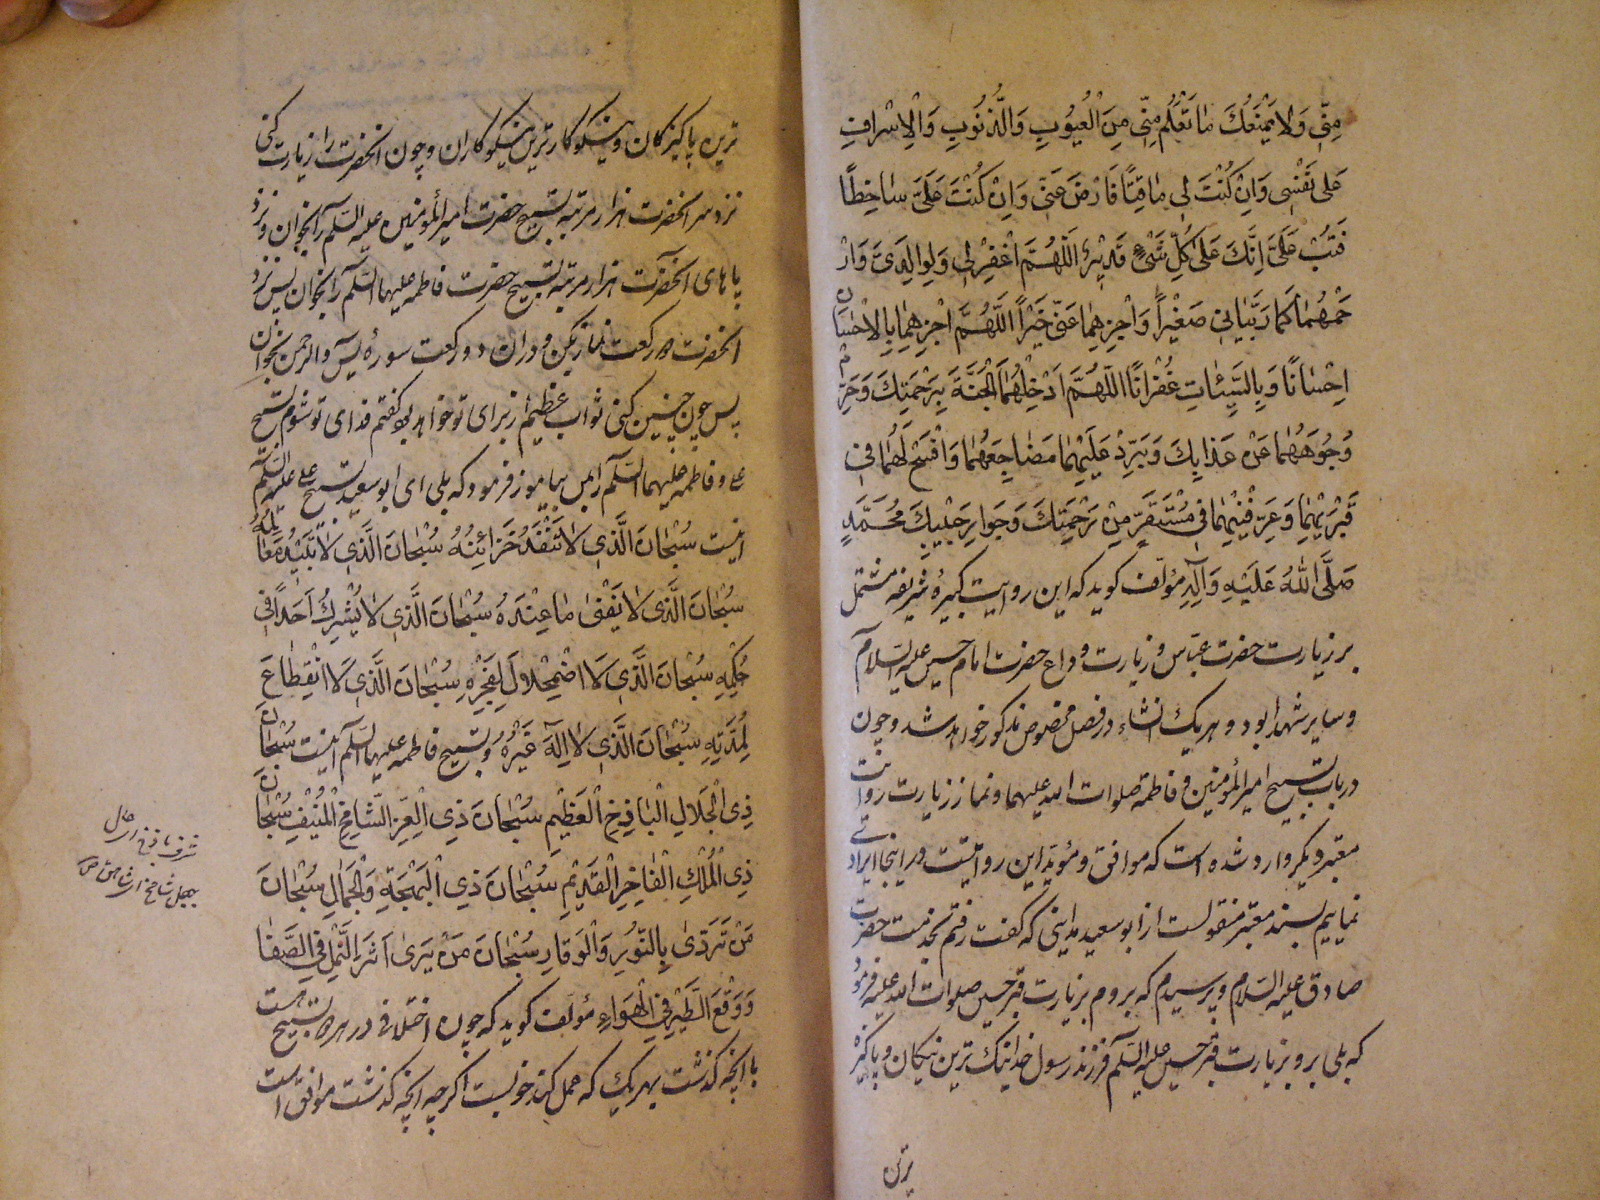 مِنّي وَلا يَمْنَعُكَ مٰا تَعْلَمُ مِنّي مِنَ الْعُيُوبِ وَالذُّنُوبِ وَالْاِسْرافِ
عَلى نَفْسى وَاِنْ كُنْتَ لى مٰاقِتًا فَارْضَ عَنّى وَاِنْ كُنْتَ عَلَىَّ سٰاخِطًا
فَتُبْ عَلَىَّ اِنَّكَ عَلىٰ كُلِّ شَىْءٍ قَديْرٌ اَللّهُمَّ اغْفِرْلى وَلِوالِدَىَّ وَارْ
حَمْهُمٰا كَمٰا رَبَّيٰانى صَغْيراً وَاجْزِهِمٰا عَنّى خَيْراً اَللّهُمَّ اجْزِهِمٰا بِالاِحْسٰانِ
اِحْسٰانًا وَبِالسَّيِّئاتِ غُفْرانًا اَللّهُمَّ اَدْخِلْهُمَا الْجَنَّةَ بِرَحْمَتِكَ وَحَرِّمْ
وُجُوهَهُمٰا عَنْ عَذابِكَ وَبَرِّدْ عَلَيْهِمٰا مَضٰاجِعَهُمٰا وَافْسَحْ لَهُمٰا فى
قَبْرَيْهِمٰا وَعَرِّفْنيْهِمٰا فى مُسْتَقَرٍّ مِنْ رَحْمَتِكَ وَجَوارِ حَبيْبِكَ مُحَمَّدٍ
صَلَّى اللّٰهُ عَلَيْهِ وَآلِهِ مؤلف كويد كه اين روايت كبيرهٔ شريفه مشتمل
بر زيارت حضرت عباس و زيارت وداع حضرت امام حسين عليه السلام
و ساير شهدا بود و هر يك انشاء در فصل مخصوص مذكور خواهد شد و چون
در باب تسبيح امير المؤمنين و فاطمه صلوات الله عليهما و نماز زيارت روايت
معتبر ديكر وارد شده است كه موافق و مؤيد اين روايتست در اينجا ايراد
نماييم بسند معتبر منقولست از ابو سعيد مداينى كه كفت رفتم بخدمت حضرت
صادق عليه السلام و پرسيدم كه بروم بزيارت قبر حسين صلوات الله عليه فرمود
كه بلى برو بزيارت قبر حسين عليه السلم فرزند رسول خدا نيك ترين نيكان و پاكيزه
ترين
ترين پاكيزكان و نيكوكار ترين نيكوكاران و چون انحضرت را زيارت كنى
نزد سر انحضرت هزار مرتبه تسبيح حضرت امير المؤمنين عليه السلم را بخوان و نزد
پاهاى انحضرت هزار مرتبه تسبيح حضرت فاطمه عليها السلم را بخوان پس نزد
انحضرت دو ركعت نماز بكن و دران دو ركعت سوره يس و الرحمن بخوان
پس چون چنين كنى ثواب عظيم از براى تو خواهد بود كفتم فداى تو شوم تسبيح
على و فاطمه عليهما السلم را بمن بياموز فرمود كه بلى اى ابو سعيد تسبيح على عليه السلم
اينست سُبْحٰانَ الَّذى لٰا تَنْفَدُ خَزائِنُهُ سُبْحٰانَ الَّذى لٰا تَبيْدُ مَعٰالِمُهُ
سُبْحٰانَ الَّذى لٰا يَفْنىٰ مٰا عِنْدَهُ سُبْحٰانَ الَّذى لٰا يُشْرِكُ اَحَداً فى
حُكْمِهِ سُبْحٰانَ الَّذى لَا اضْمِحْلالَ لِفَخْرِهِ سُبْحٰانَ الَّذى لَا انْقِطٰاعَ
لِمُدَّتِهِ سُبْحٰانَ الَّذى لٰا اِلٰهَ غَيْرُهُ و تسبيح فاطمه عليها السلم اينست سُبْحٰانَ
ذِى الْجَلالِ الْبٰاذِخِ الْعَظيْمِ سُبْحٰانَ ذِى الْعِزِّ الشّامِخِ الْمُنيْفِ سُبْحٰانَ
ذِى الْمُلْكِ الْفٰاخِرِ الْقَديْمِ سُبْحٰانَ ذِى الْبَهْجَةِ وَالْجَمٰالِ سُبْحٰانَ
مَنْ تَرَدّىٰ بِالنُّوْرِ وَالْوَقارِ سُبْحٰانَ مَنْ يَرىٰ اَثَرَ النَّمْلِ فِى الصَّفٰا
وَوَقْعَ الطَّيْرِ فِى الْهَوٰاءِ مؤلف كويد كه چون اختلافى در هر دو تسبيح هست
با انچه كذشت بهر يك كه عمل كند خوبست اكرچه انچه كذشت موافق است
شرف باذخ اى عال
جبل شامخ اى شاهق ص